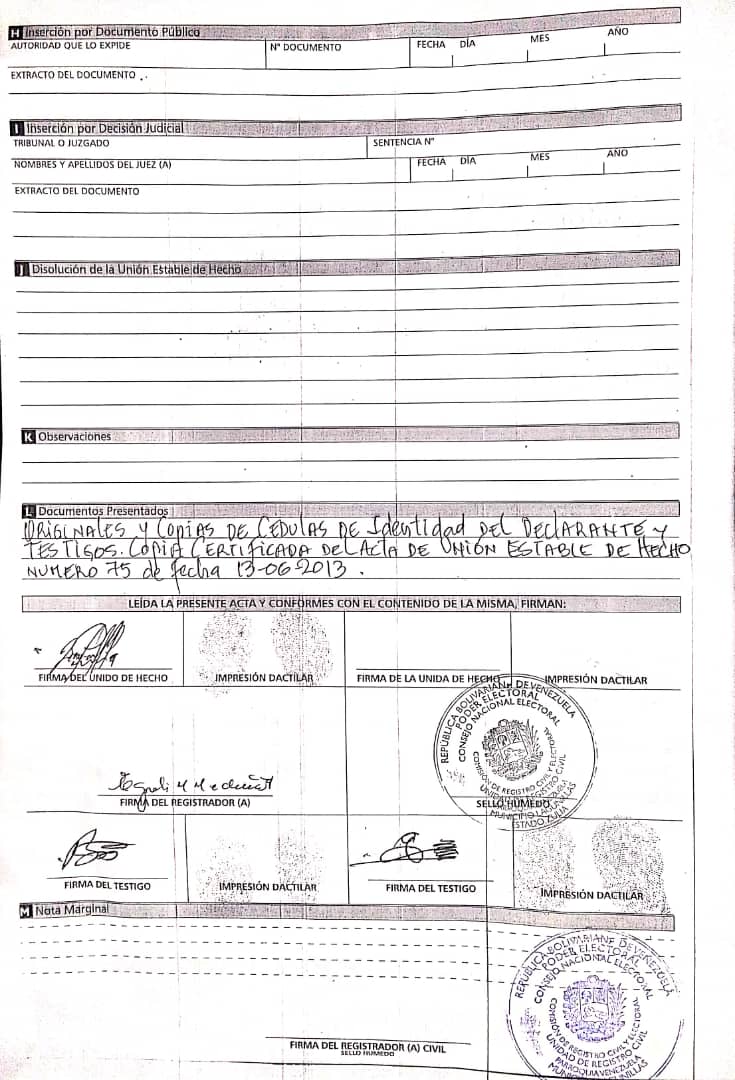 H Inserción por Documento Público
AUTORIDAD QUE LO EXPIDE
N° DOCUMENTO
FECHA DÍA MES AÑO
EXTRACTO DEL DOCUMENTO
I Inserción por Decisión Judicial
TRIBUNAL O JUZGADO
SENTENCIA N°
NOMBRES Y APELLIDOS DEL JUEZ (A)
FECHA DÍA MES AÑO
EXTRACTO DEL DOCUMENTO
J Disolución de la Unión Estable de Hecho
K Observaciones
L Documentos Presentados
ORIGINALES y Copias DE CEDULAS DE Identidad DEL DECLARANTE y
TESTIGOS. COPIA CERTIFICADA DEL ACTA DE UNIÓN ESTABLE DE HECHO
NUMERO 75 de fecha 13-06-2013.
LEÍDA LA PRESENTE ACTA Y CONFORMES CON EL CONTENIDO DE LA MISMA, FIRMAN:
FIRMA DEL UNIDO DE HECHO
IMPRESIÓN DACTILAR
FIRMA DE LA UNIDA DE HECHO
IMPRESIÓN DACTILAR
REPÚBLICA BOLIVARIANA DE VENEZUELA
PODER ELECTORAL
CONSEJO NACIONAL ELECTORAL
COMISIÓN DE REGISTRO CIVIL Y ELECTORAL
UNIDAD DE REGISTRO CIVIL
MUNICIPIO LAGUNILLAS
ESTADO ZULIA
FIRMA DEL REGISTRADOR (A)
SELLO HÚMEDO
FIRMA DEL TESTIGO
IMPRESIÓN DACTILAR
FIRMA DEL TESTIGO
IMPRESIÓN DACTILAR
M Nota Marginal
REPÚBLICA BOLIVARIANA DE VENEZUELA
PODER ELECTORAL
CONSEJO NACIONAL ELECTORAL
COMISIÓN DE REGISTRO CIVIL Y ELECTORAL
UNIDAD DE REGISTRO CIVIL
PARROQUIA VENEZUELA
FIRMA DEL REGISTRADOR (A) CIVIL
SELLO HÚMEDO